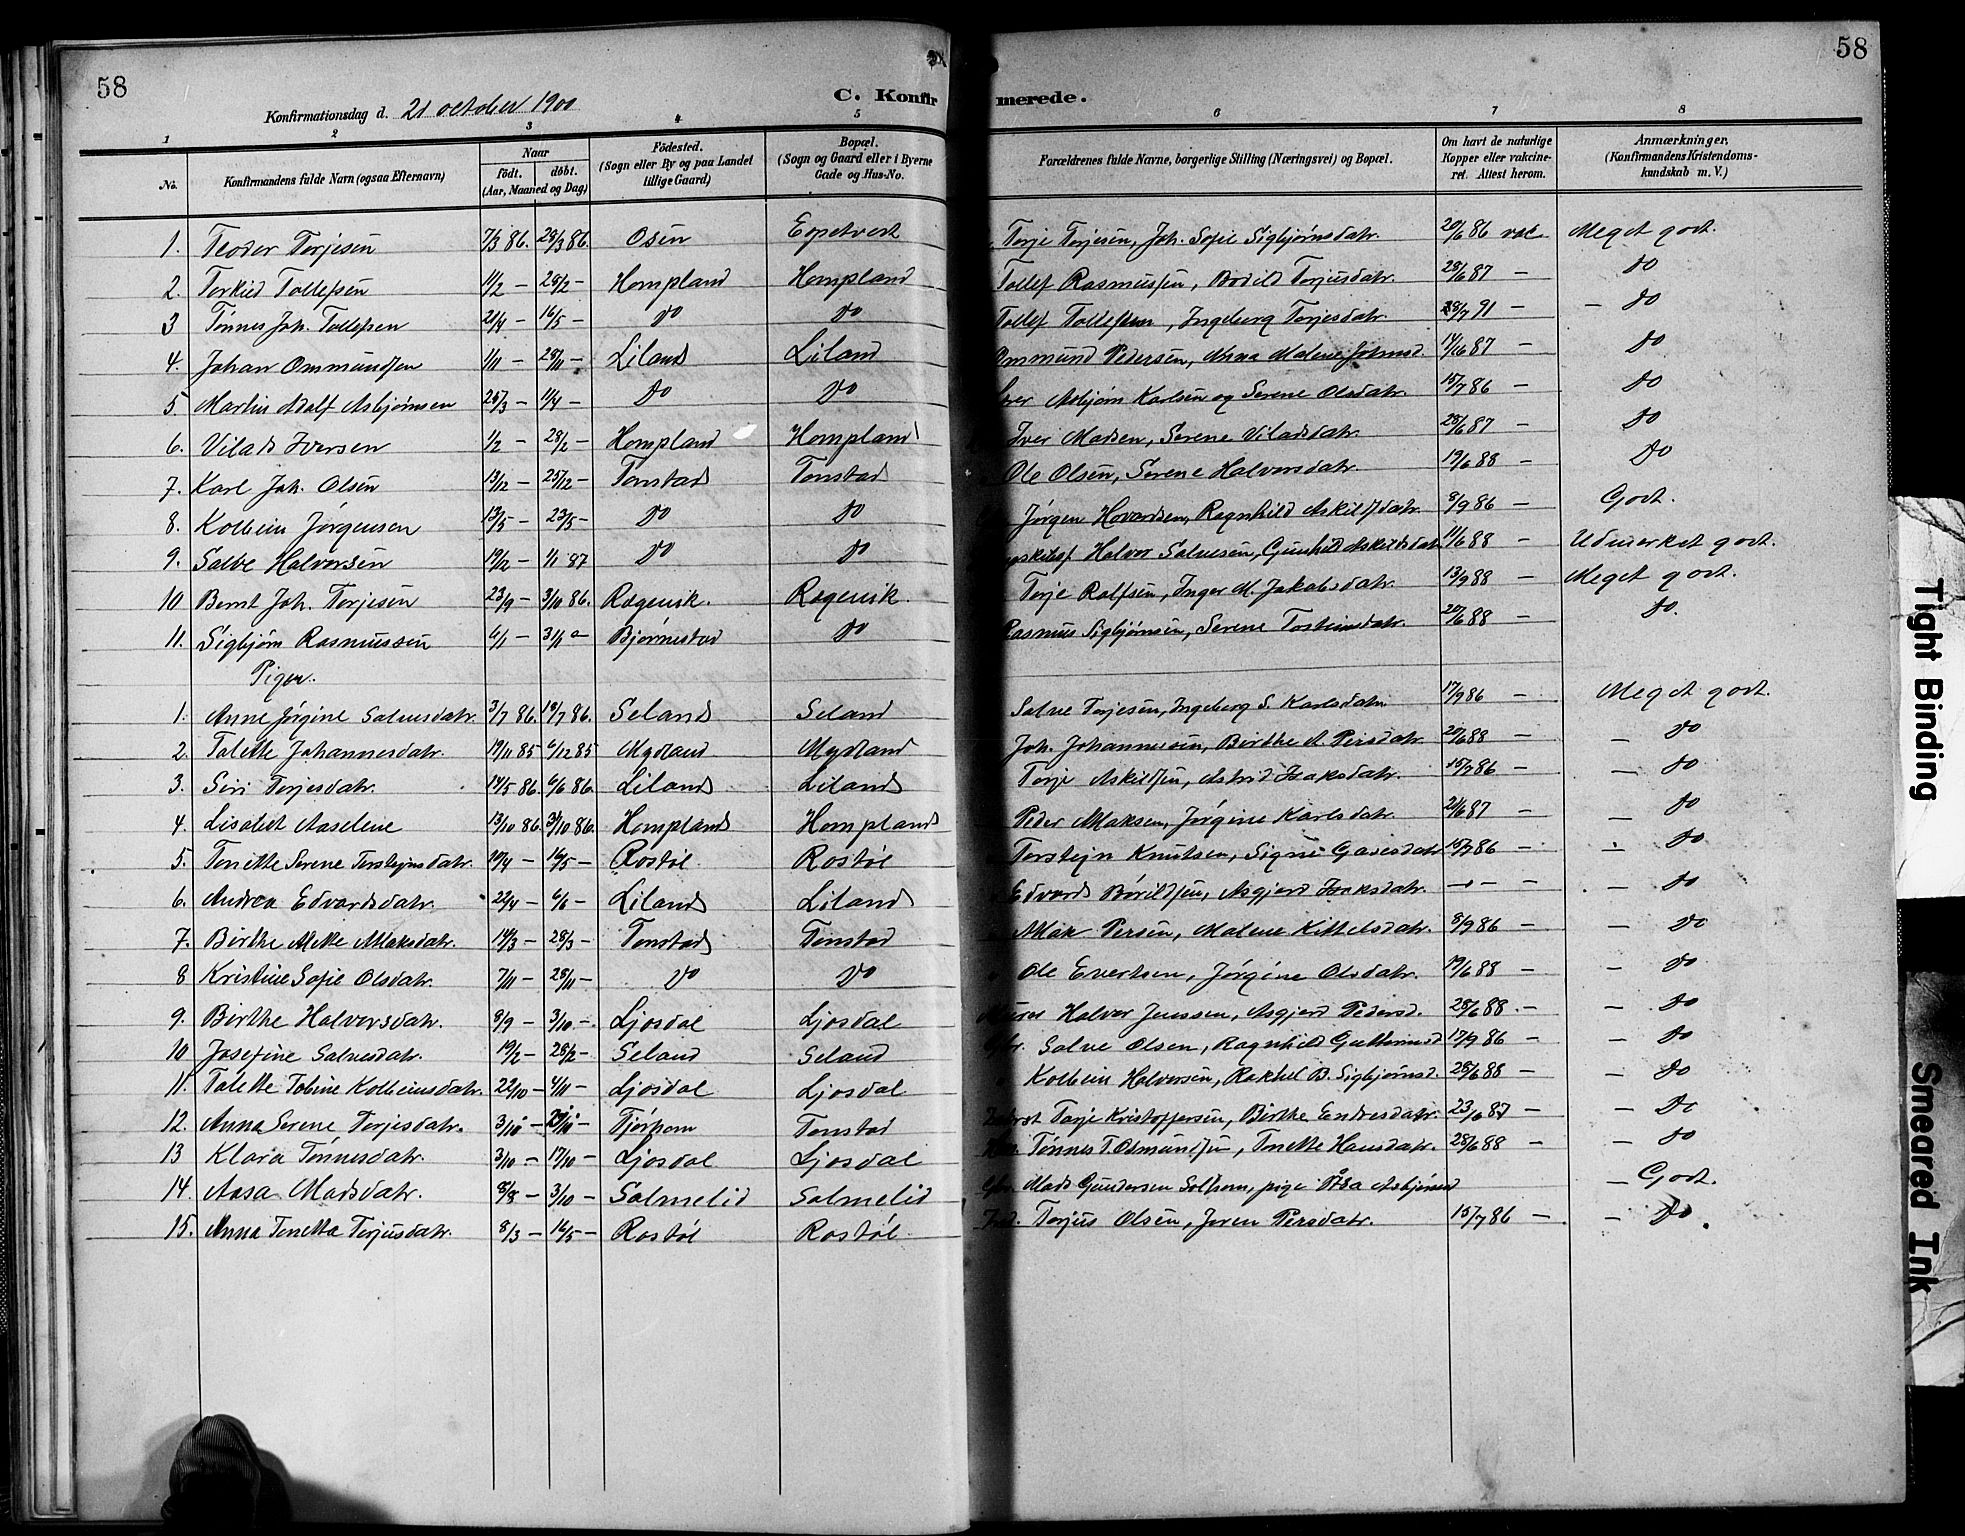 58
58
C. Konfirmerede.
Konfirmationsdag d. 21 october 1900
1 2 3 4 5 6 7 8
No. Konfirmandens fulde Navn (ogsaa Efternavn) Naar født. døbt. (Aar, Maaned og Dag) Fødested. (Sogn eller By og paa Landet tillige Gaard) Bopæl. (Sogn og Gaard eller i Byerne Gade og Hus-No. Forældrenes fulde Navne, borgerlige Stilling (Næringsvei) og Bopæl. Om havt de naturlige Kopper eller vakcineret. Attest herom. Anmærkninger. (Konfirmandens Kristendomskundskab m. V.)
1. Teodor Torjesen 7/3 86. 28/3 86. Osen Torje Torjesen, Joh. Sofie Sigbjørnsdatr. 20/6 86 vac Meget godt.
2. Torkild Tollefsen 11/2 – 28/2 – Hompland Hompland Tollef Rasmussen, Bodild Torjusdatr. 28/6 87 – do
3 Tønnes Joh. Tollefsen 21/4 – 16/5 – do do Tollef Tollefsen, Ingeborg Torjesdatr. 28/7 91 – – do
4. Johan Ommundsen 1/11 – 28/11 – Liland Liland Ommund Pedersen, Anna Malene Johnsd 87 – do
5 Martin Adolf Asbjørnsen 25/3 – 11/4 – do do Asbjørn Karlsen og Serene Olsdatr. 15/7 86 – do
6. Vilads Iversen 1/2 – 28/2 – Hompland Hompland Iver Madsen, Serene Viladsdatr. 28/6 87 – do
7. Karl Joh. Olsen 13/12 – 25/12 – Tonstad Tonstad Ole Olsen, Serene Halvorsdatr. 19/6 88 – do
8. Kolbein Jørgensen 13/5 – 23/5 – do do Jørgen Hovardsen, Ragnhild Askildsdatr. 8/9 86 – Godt.
9. Salve Halvorsen 19/2 – 1/1 87 do do Halvor Salvesen, Gunhild Askildsdatr 11/6 88 – Udmerket godt.
10 Bernt Joh. Torjesen 23/9 – 3/10 86. Rægevik. Rægevik. Torje Rolfsen, Inger M. Jakobsdatr. 13/9 88 – Meget godt.
11. Sigbjørn Rasmussen 6/1 – 31/1 – Bjørnestad do Rasmus Sigbjørnsen, Serene Tosteinsdatr. 20/6 88 – do.
Piger.
1. Anne Jørgine Salvesdatr. 3/7 86. 18/7 86. Seland Seland Salve Torjesen, Ingeborg S. Karlsdatr. 17/9 86 – Meget godt.
2. Talette Johannesdatr. 19/11 85 6/12 85 Mydland Mydland Joh. Johannessen, Birthe A. Persdatr. 20/6 88 – – do
3. Siri Torjesdatr. 14/5 86. 6/6 86. Liland Liland Torje Askildsen, Astrid Isaksdatr. 15/7 86 – – do
4. Lisabet Aaselene 13/10 86. 31/10 86. Hompland Hompland Peder Maksen, Jørgine Karlsdatr. 21/6 87 – – do
5 Tonette Serene Torsteinsdatr. – 16/5 – Rostøl. Rostøl Torstejn Knutsen, Signe Gasesdatr 15/7 86 – – do
6. Andrea Edvardsdatr. 22/4 – 6/6 – Liland Liland Edvard Bårildsen, Asgjerd Isaksdatr. – – – do
7. Birthe Mette Maksdatr. 14/3 – 28/3 – Tonstad Tonstad Mak Persen, Malene Kittelsdatr. 8/9 86 – – do
8 Kristine Sofie Olsdatr. 7/11 – 28/11 – do do Ole Evertsen, Jørgine Olsdatr. 19/6 88 – – do
9. Birthe Halvorsdatr. 8/9 – 3/10 – Ljosdal Ljosdal Halvor Jenssen, Asgjerd Pedersd. 28/6 88. – – do
10 Josefine Salvesdatr. 19/2 – 28/2 – Seland Seland Salve Olsen, Ragnhild Guttormsd 17/9 86 – do
11. Talette Tobine Kolbeinsdatr. 22/10 – 4/11 – Ljosdal Ljosdal Kolbein Halvorsen, Rakhel B. Sigbjørnsd. 28/6 88 – – do
12. Anna Serene Torjesdatr. 3/10 – – Fjørhom Tonstad Torje Kristoffersen, Birthe Endresdatr. 23/6 87 – – do
13 Klara Tønnesdatr. 3/10 – 17/10 – Ljosdal Ljosdal Tønnes T. Osmundsen, Tonette Hansdatr. 28/6 88 – – do
14. Aasa Madsdatr. 8/8 – 3/10 – Salmelid Salmelid Mads Gundersen Solhom, pige Åsa Asbjørnsd – Godt.
15. Anna Tonetta Torjusdatr. 8/3 – 16/5 – Rostøl Rostøl. Torjus Olsen, Joren Persdatr. 15/7 86 – – do.
Tight Binding
Smeared Ink